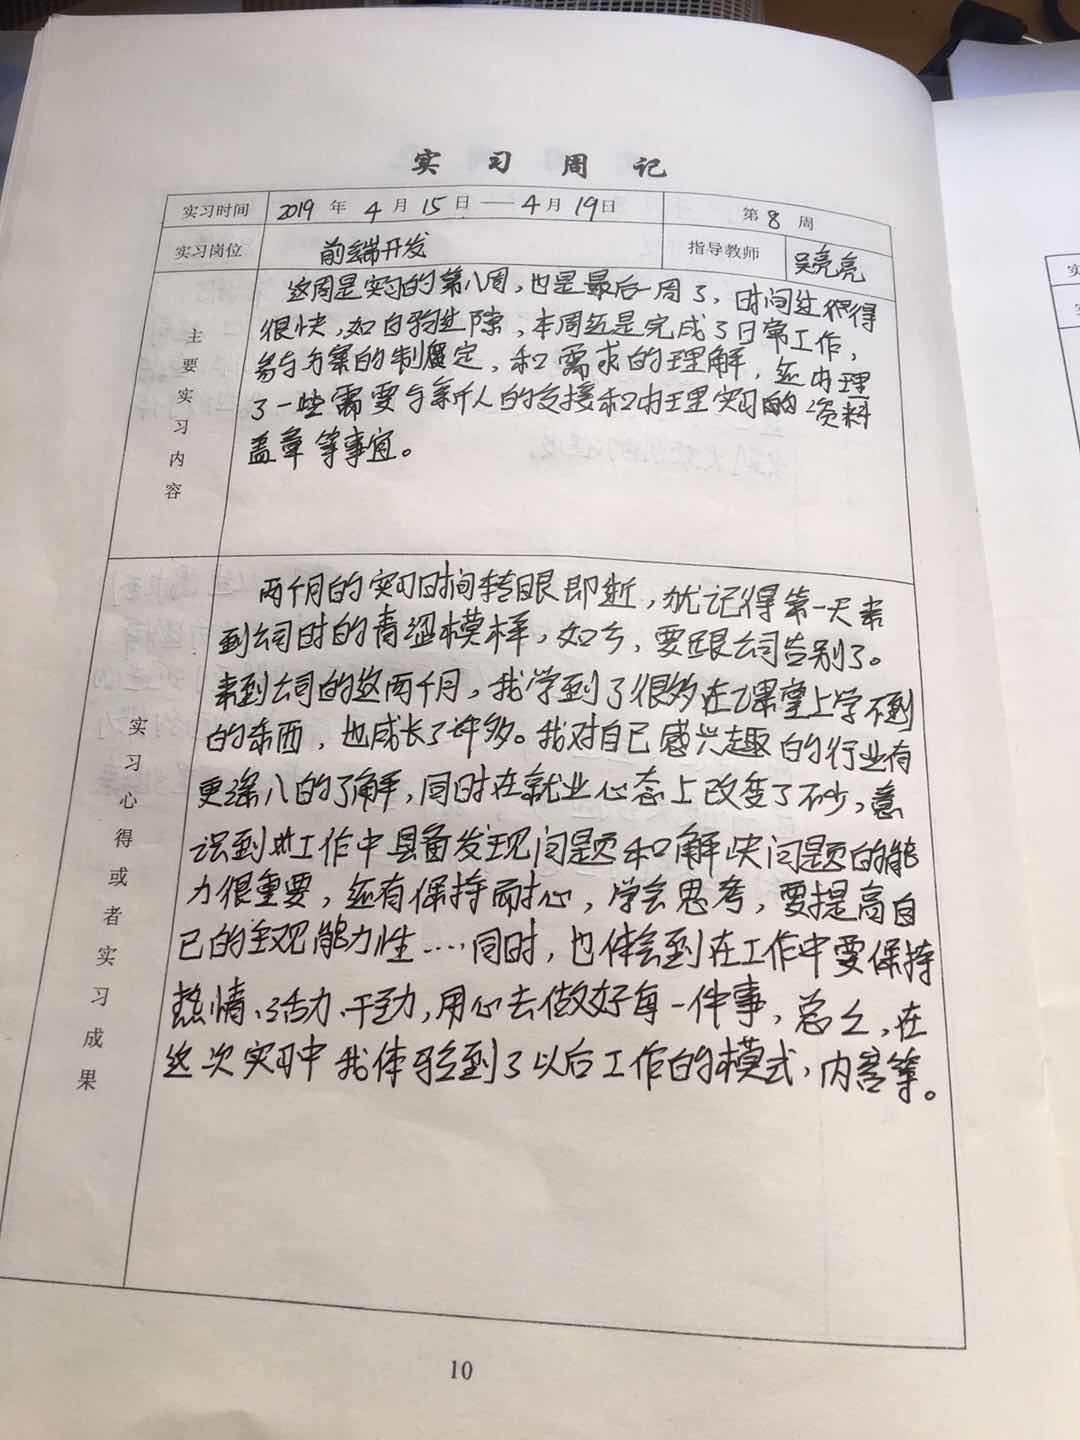 实习周记
实习时间 2019年4月15日——4月19日 第8周
实习岗位 前端开发 指导教师 吴亮亮
主要实习内容
这周是实习的第八周，也是最后一周了，时间过得
很快，如白驹过隙，本周还是完成了日常工作，
参与方案的制定，和需求的理解，还办理
了一些需要与新人的交接和办理实习的资料
盖章等事宜。
实习心得或者实习成果
两个月的实习时间转眼即逝，犹记得第一天来
到公司时的青涩模样，如今，要跟公司告别了。
来到公司的这两个月，我学到了很多在课堂上学不到
的东西，也成长了许多。我对自己感兴趣的行业有
更深入的了解，同时在就业心态上改变了不少，意
识到工作中具备发现问题和解决问题的能
力很重要，还有保持耐心，学会思考，要提高自
己的主观能力性……同时，也体会到在工作中要保持
热情、活力、干劲，用心去做好每一件事，总之，在
这次实习中我体验到了以后工作的模式，内容等。
10